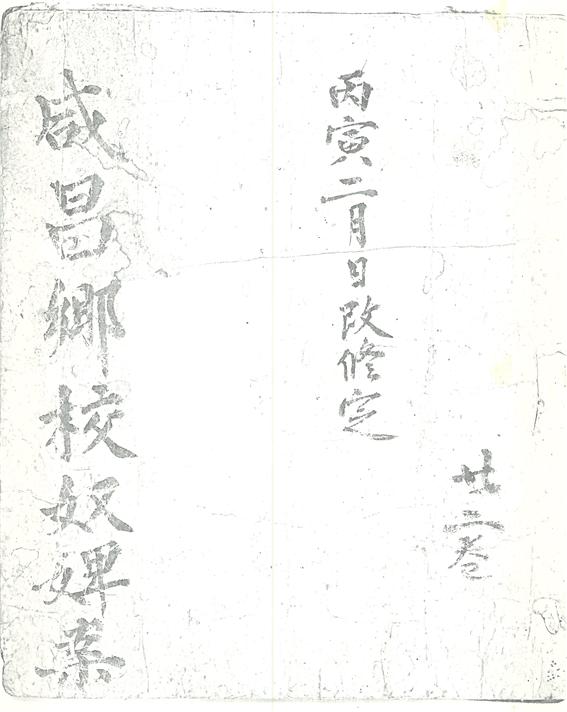 廿二卷
丙寅二月日改修定
咸昌鄉校奴婢案